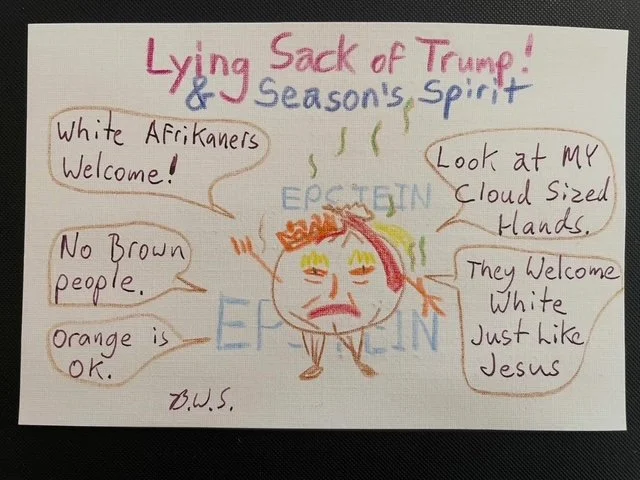 Lying Sack of Trump!
& Season's Spirit
White Afrikaners
Welcome!
Look at MY
Cloud Sized
Hands.
EPSTEIN
No Brown
people.
They Welcome
White
Just Like
Jesus
Orange is
OK.
EPSTEIN
B.W.S.